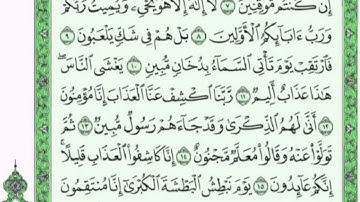 إِن كُنتُم مُّوقِنِينَ ٧ لَآ إِلَٰهَ إِلَّا هُوَ يُحْيِۦ وَيُمِيتُ رَبُّكُمْ
وَرَبُّ ءَابَآئِكُمُ ٱلْأَوَّلِينَ ٨ بَلْ هُمْ فِى شَكٍّ يَلْعَبُونَ ٩
فَٱرْتَقِبْ يَوْمَ تَأْتِى ٱلسَّمَآءُ بِدُخَانٍ مُّبِينٍ ١٠ يَغْشَى ٱلنَّاسَ
هَٰذَا عَذَابٌ أَلِيمٌ ١١ رَّبَّنَا ٱكْشِفْ عَنَّا ٱلْعَذَابَ إِنَّا مُؤْمِنُونَ
١٢ أَنَّىٰ لَهُمُ ٱلذِّكْرَىٰ وَقَدْ جَآءَهُمْ رَسُولٌ مُّبِينٌ ١٣ ثُمَّ
تَوَلَّوْا۟ عَنْهُ وَقَالُوا۟ مُعَلَّمٌ مَّجْنُونٌ ١٤ إِنَّا كَاشِفُوا۟ ٱلْعَذَابِ قَلِيلًا
إِنَّكُمْ عَآئِدُونَ ١٥ يَوْمَ نَبْطِشُ ٱلْبَطْشَةَ ٱلْكُبْرَىٰٓ إِنَّا مُنتَقِمُونَ